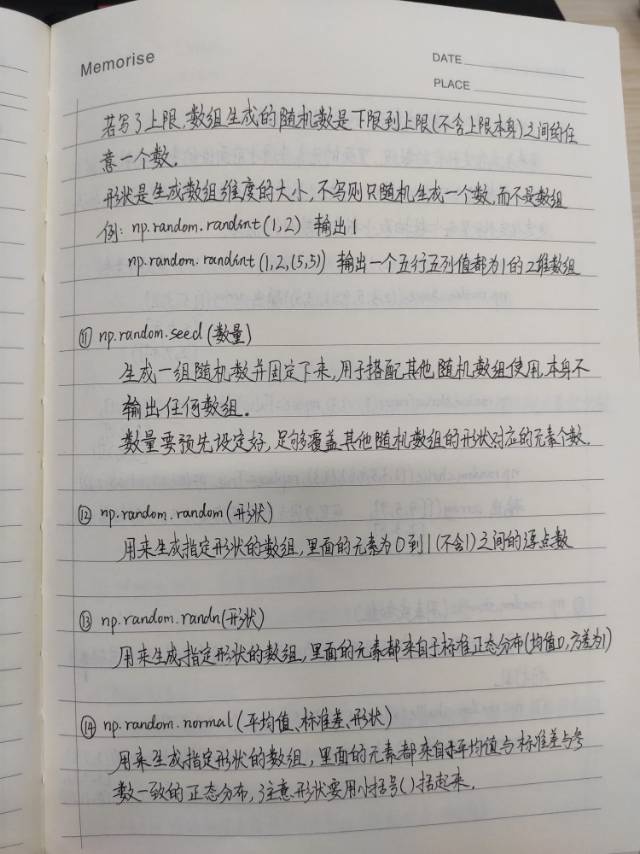 Memorise
DATE
PLACE
若写了上限,数组生成的随机数是下限到上限(不含上限本身)之间的任
意一个数.
形状是生成数组维度的大小,不写则只随机生成一个数,而不是数组
例: np.random.randint(1,2) 输出1
np.random.randint(1,2,(5,5)) 输出一个五行五列值都为1的2维数组
⑪ np.random.seed(数量)
生成一组随机数并固定下来,用于搭配其他随机数组使用,本身不
输出任何数组.
数量要预先设定好,足够覆盖其他随机数组的形状对应的元素个数.
⑫ np.random.random(形状)
用来生成指定形状的数组,里面的元素为0到1(不含1)之间的浮点数
⑬ np.random.randn(形状)
用来生成指定形状的数组,里面的元素都来自于标准正态分布(均值0,方差为1)
⑭ np.random.normal(平均值、标准差、形状)
用来生成指定形状的数组,里面的元素都来自平均值与标准差与参
数一致的正态分布,注意形状要用小括号()括起来.